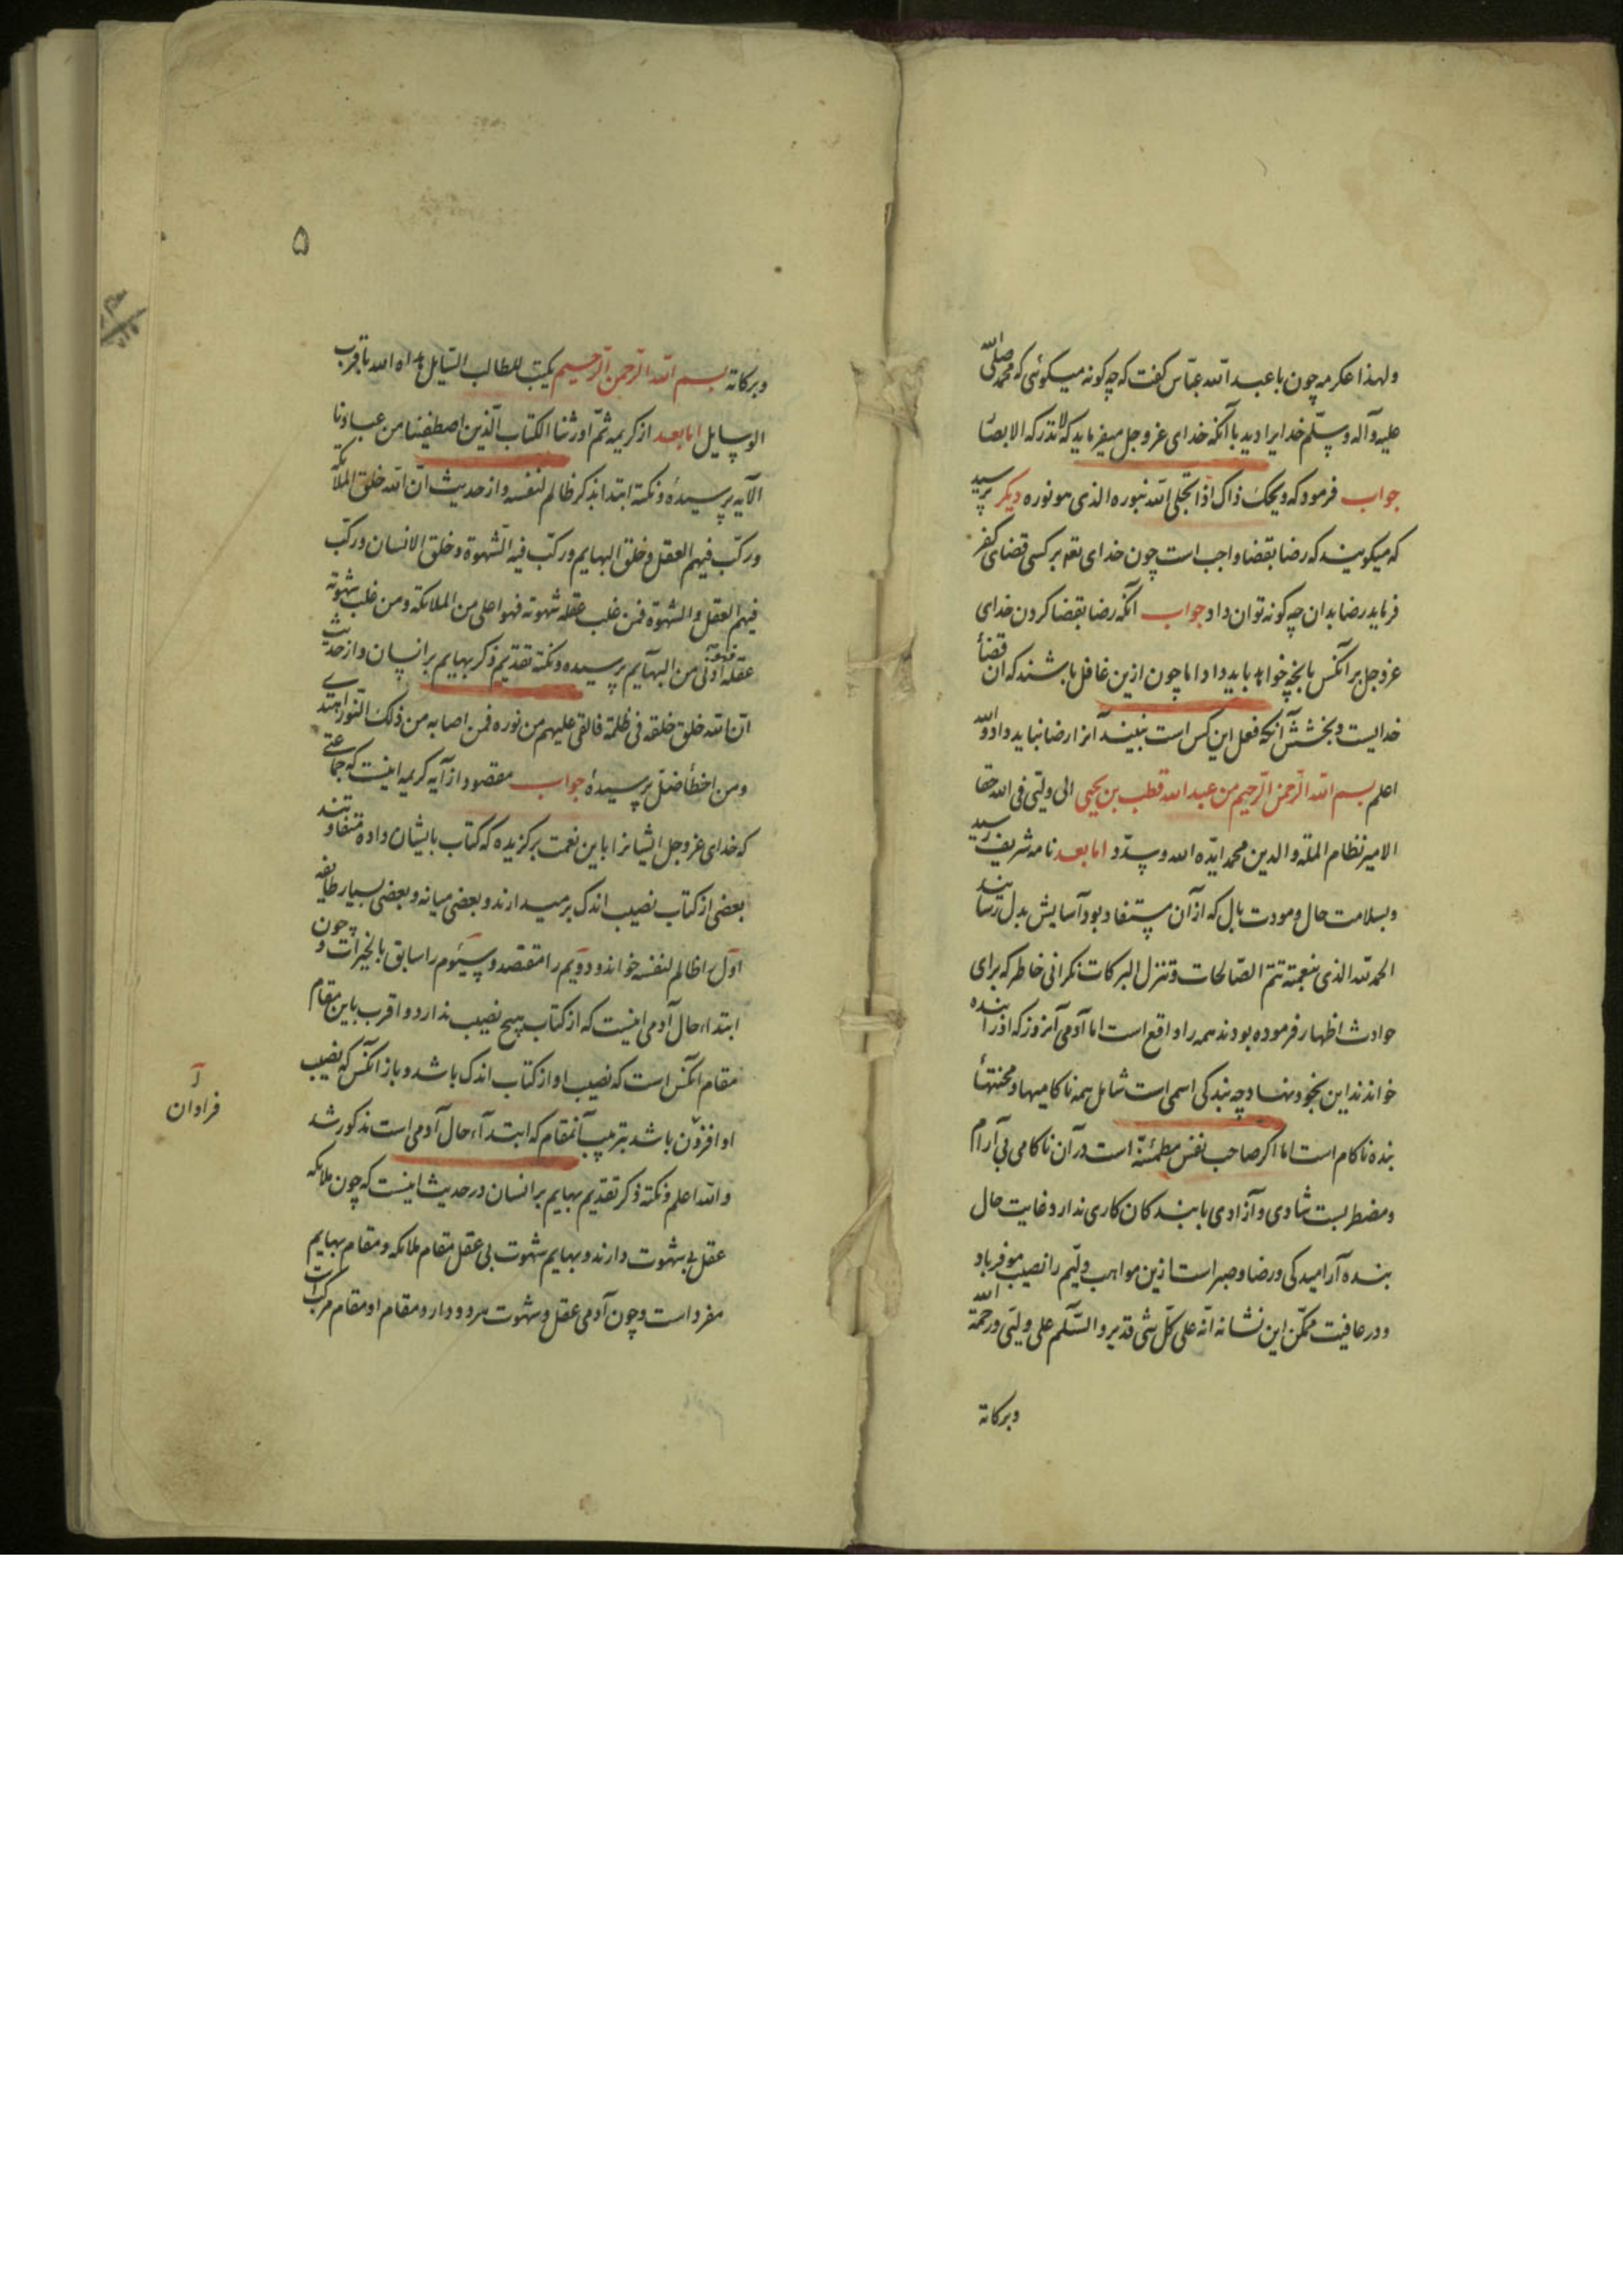 ولهذا عکرمه چون با عبد الله عباس گفت که چه کونه میکوئی که محمد صلی الله
علیه وآله وسلم خدایرا دید با آنکه خدای عز وجل میفرماید که لا تدرکه الابصا
جواب فرمود که ویحک ذاک اذا تجلی الله بنوره الذی هو نوره دیکر پرسید
که میکویند که رضا بقضا واجب است چون خدای تعو بر کسی قضای کفر
فرماید رضا بدان چه کونه توان داد جواب آنکه رضا بقضا کردن خدای
عز وجل بر آنکس بانچه خواهد باید داد اما چون ازین غافل باشند که ان قضأ
خدایست و بخشش آنکه فعل این کس است ببیند آنرا رضا نباید داد والله
اعلم بسم الله الرحمن الرحیم من عبد الله قطب بن یحیی الی ولیی فی الله حقا
الامیر نظام الملة والدین محمد ایده الله وسدد اما بعد نامه شریف رسید
وبسلامت حال ومودت بال که از آن مستفاد بود آسایش بدل رسانید
الحمد لله الذی بنعمته تتم الصالحات وتنزل البرکات نکرانی خاطر که برای
حوادث اظهار فرموده بودند همه را واقع است اما آدمی آنروز که اورا بنده
خواندند این بخود نهاد چه بندکی اسمی است شامل همه ناکامیها ومحنتها
بنده ناکام است اما اکر صاحب نفس مطمئنة است در آن ناکامی بی آرام
ومضطر نیست شادی وآزادی با بندکان کاری ندارد غایت حال
بنده آرامیدکی ورضا وصبر است ازین مواهب ولیم را نصیب موفر باد
ودر عافیت ممکن این نشانه انه علی کل شیٔ قدیر والسلم علی ولیی ورحمة الله
وبرکاته
۵
وبرکاته بسم الله الرحمن الرحیم یکتب للطالب السایل هداه الله باقرب
الوسایل اما بعد از کریمه ثم اورثنا الکتاب الذین اصطفینا من عبادنا
الآیه پرسیدهٔ ونکته ابتدا بذکر ظالم لنفسه واز حدیث ان الله خلق الملائکة
ورکب فیهم العقل وخلق البهایم ورکب فیه الشهوة وخلق الانسان ورکب
فیهم العقل والشهوة فمن غلب عقله شهوته فهو اعلی من الملائکة ومن غلب شهوته
عقله فهو ادنی من البهایم پرسیده ونکته تقدیم ذکر بهایم بر انسان واز حدیث
ان الله خلق خلقه فی ظلمة فالقی علیهم من نوره فمن اصابه من ذلک النور اهتدی
ومن اخطأ ضل پرسیدهٔ جواب مقصود از آیه کریمه اینست که جماعتی
که خدای عز وجل ایشانرا باین نعمت برکزیده که کتاب بایشان داده متفاوتند
بعضی از کتاب نصیب اندک برمیدارند وبعضی میانه وبعضی بسیار طایفه
اول را ظالم لنفسه خواند ودویم را مقتصد وسیئوم را سابق بالخیرات وچون
ابتداء حال آدمی اینست که از کتاب هیچ نصیب ندارد واقرب باین مقام
مقام آنکس است که نصیب او از کتاب اندک باشد وباز آنکس که نصیب
او افزون باشد بترتیب آنمقام که ابتدآء حال آدمی است مذکور شد
والله اعلم ونکته ذکر تقدیم بهایم بر انسان در حدیث اینست که چون ملائکه
عقل بی شهوت دارند وبهایم شهوت بی عقل مقام ملائکه ومقام بهایم
مفرد است وچون آدمی عقل وشهوت هر دو دارد ومقام او مقام مرکب است
فراوان